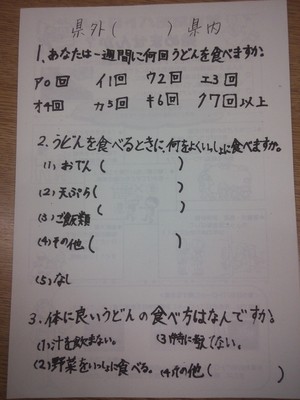 県外(　　　)県内
1.あなたは一週間に何回うどんを食べますか?
ア0回 イ1回 ウ2回 エ3回
オ4回 カ5回 キ6回 ク7回以上
2.うどんを食べるときに、何をよくいっしょに食べますか。
(1)おでん(　　　)
(2)天ぷら(　　　)
(3)ご飯類
(4)その他(　　　)
(5)なし
3.体に良いうどんの食べ方はなんですか?
(1)汁を飲まない。 (3)特に気にしてない。
(2)野菜をいっしょに食べる。 (4)その他(　　　)